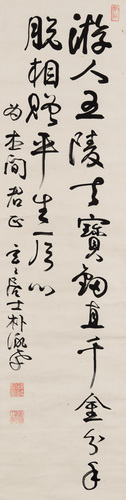 游人五陵去寶釼直千金分手
脫相贈平生一片心
為本間君正 玄々居士朴泳孝